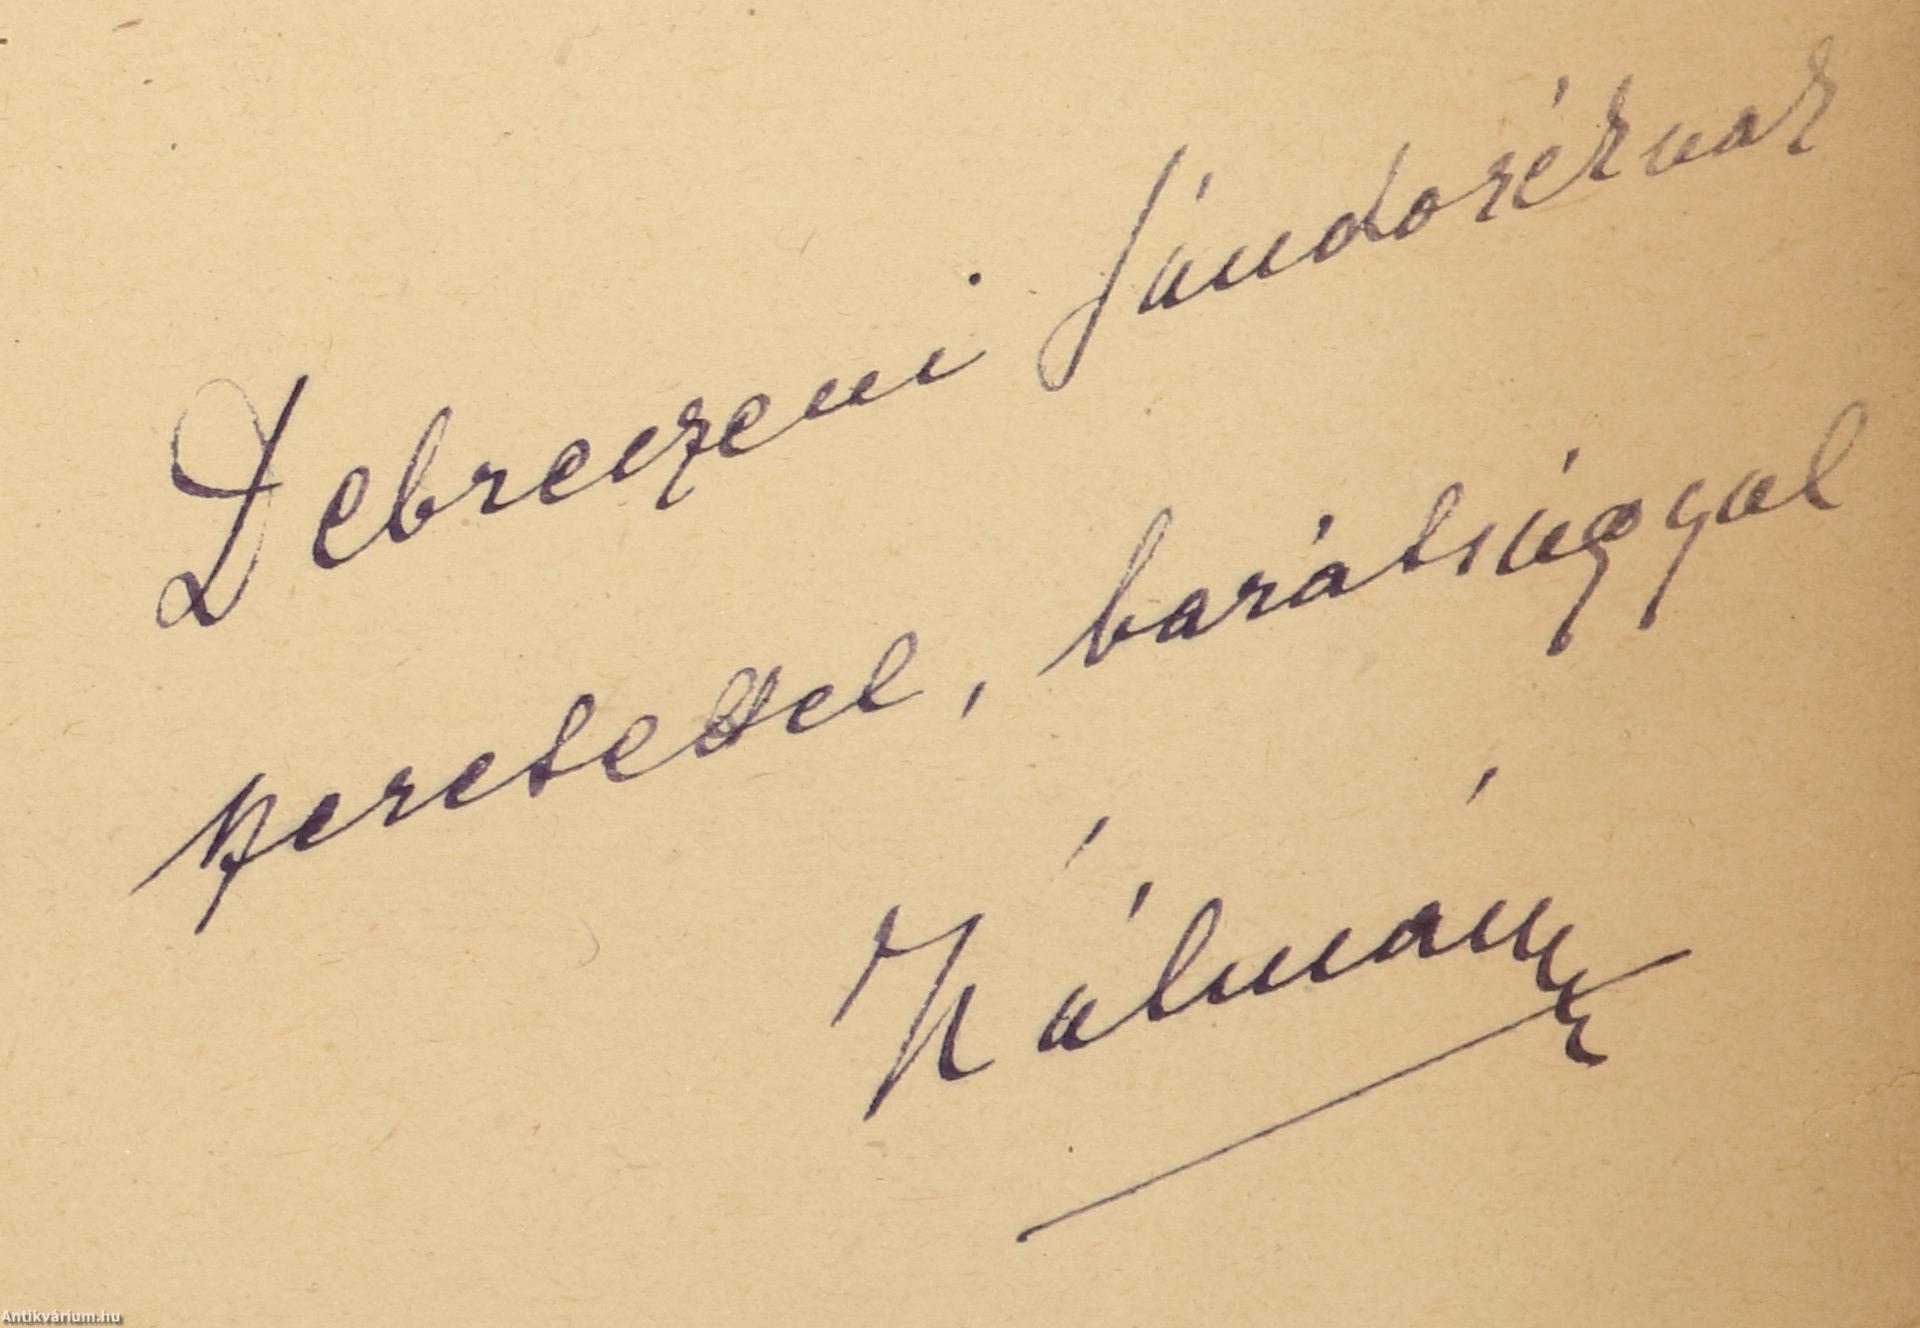 Debreczeni Sándoréknak
szeretettel, barátsággal
Kálmán
Antikvárium.hu